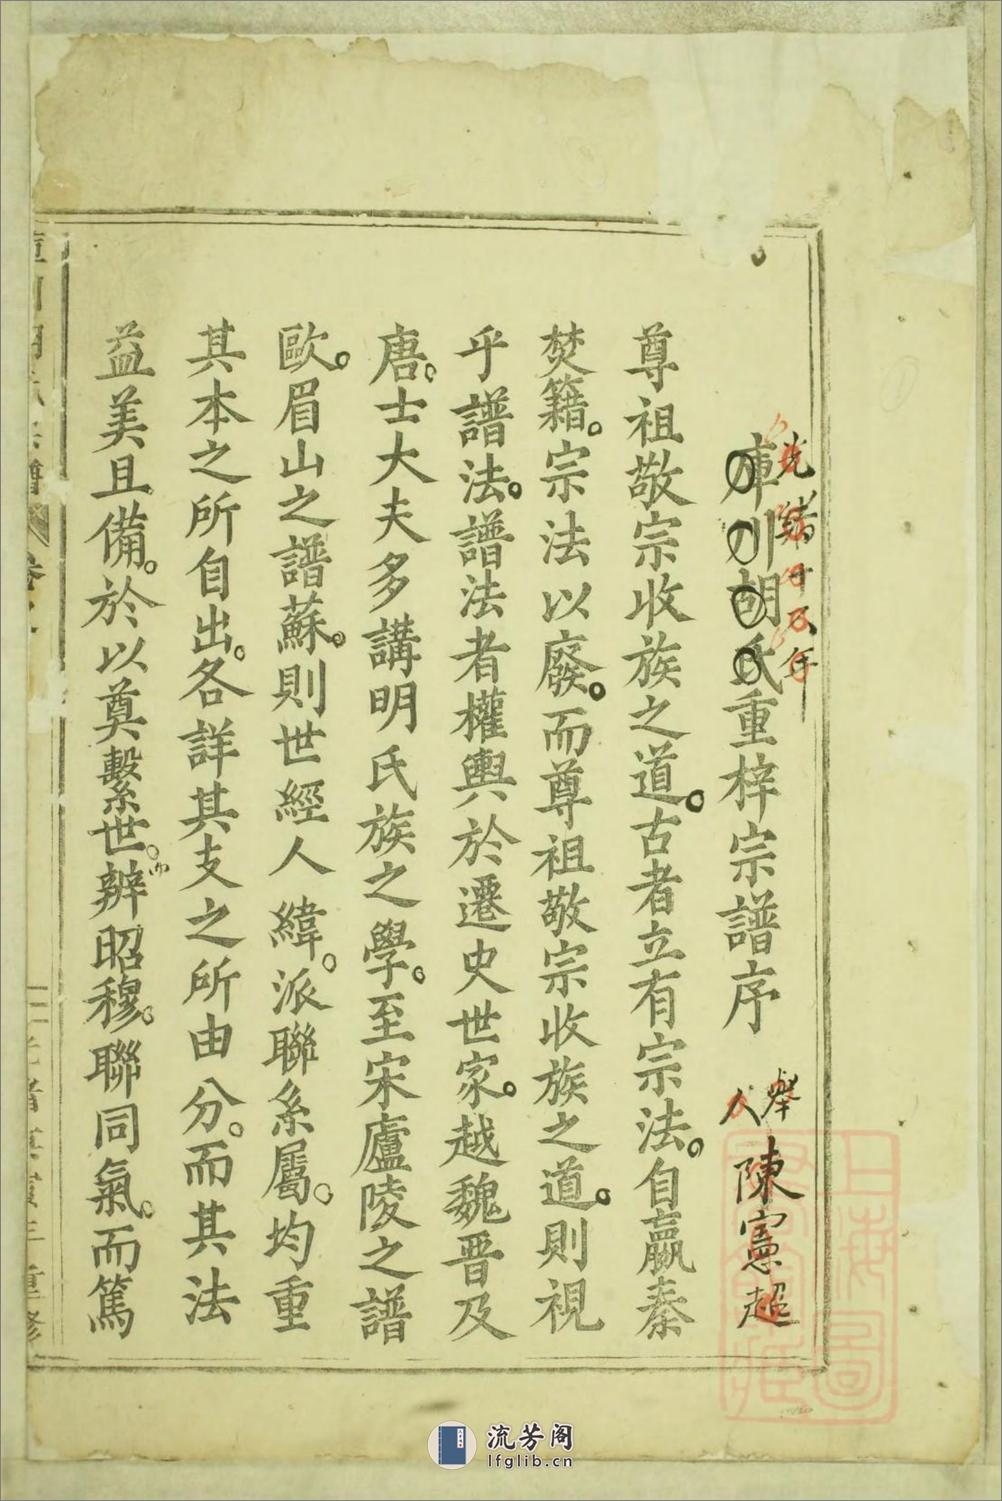 光緒十五年
庫川胡氏重梓宗譜序
舉人
陳憲超
尊祖敬宗收族之道古者立有宗法自嬴秦
焚籍宗法以廢而尊祖敬宗收族之道則視
乎譜法譜法者權輿於遷史世家越魏晋及
唐士大夫多講明氏族之學至宋廬陵之譜
歐眉山之譜蘇則世經人緯派聯系屬均重
其本之所自出各詳其支之所由分而其法
益美且備於以奠繫世辨昭穆聯同氣而篤
上海圖
流芳阁
lfglib.cn